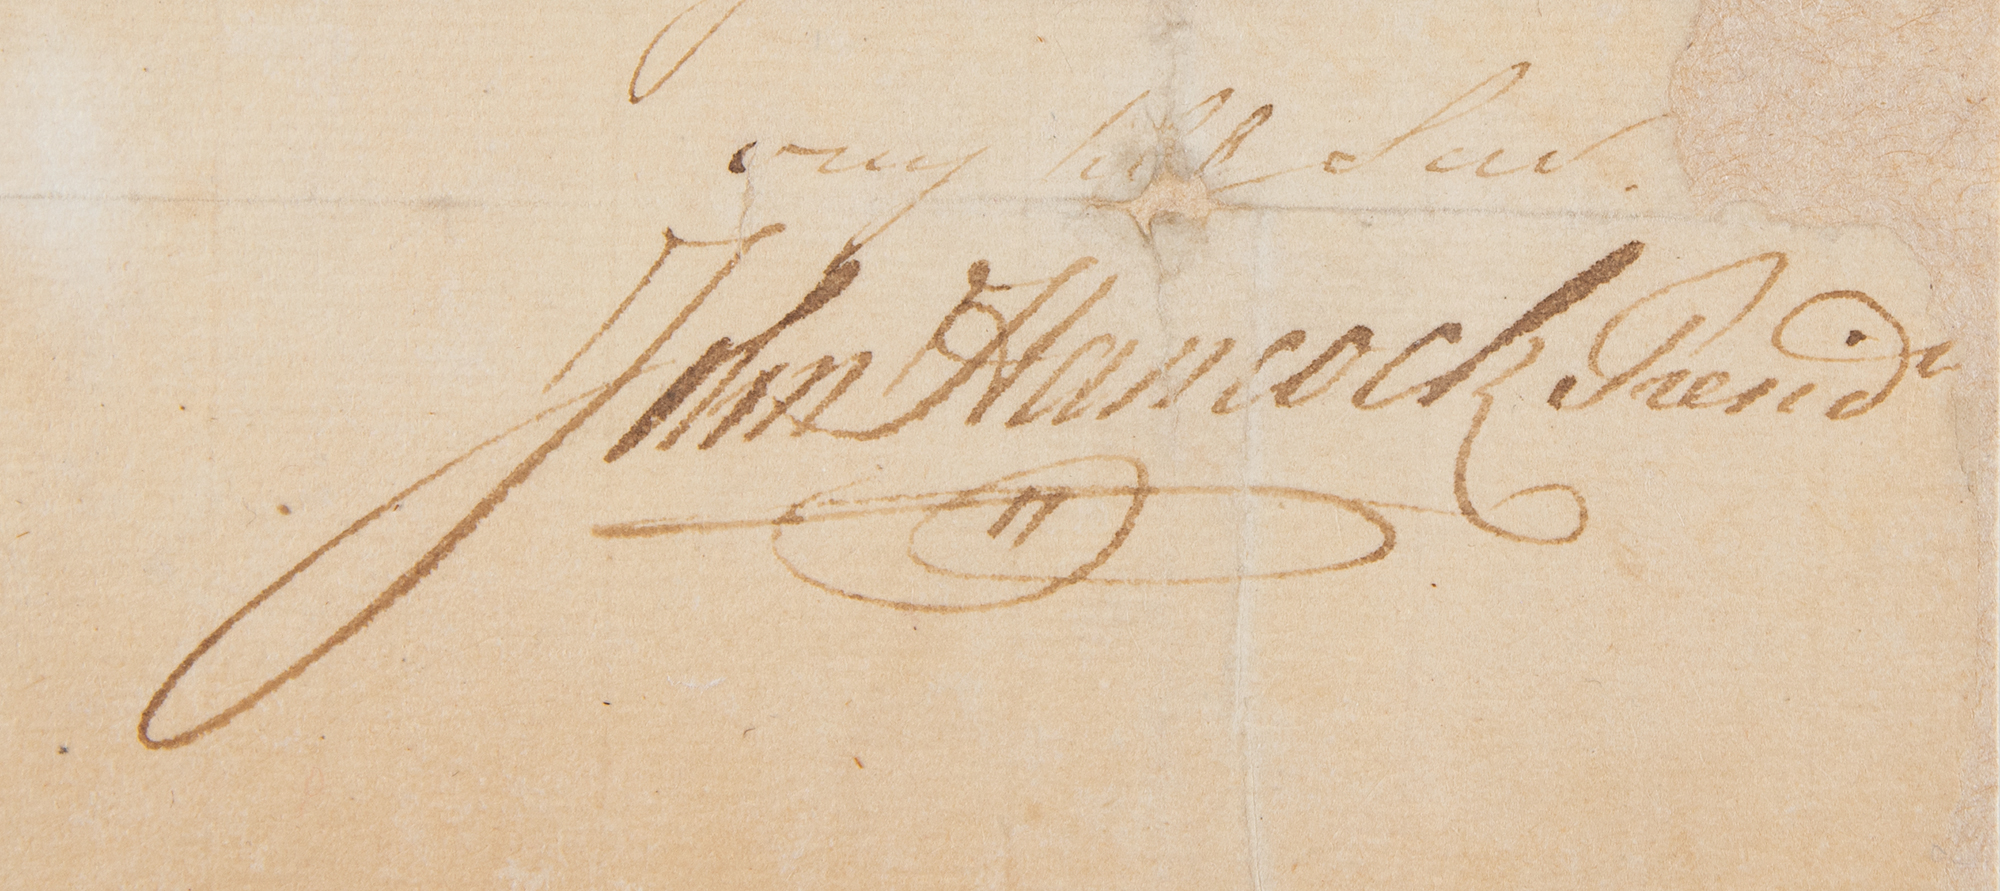 very hble Serv.
John Hancock Presidt